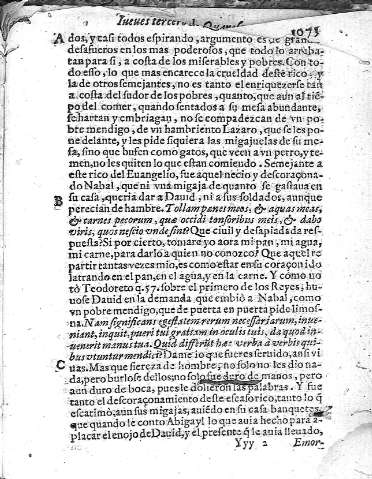 Jueves tercero de
1075
A dos, y casi todos espirando, argumento es de gran-
desafueros en los mas poderosos, que todo lo arreba-
tan para si, a costa de los miserables y pobres. Con to-
do esso, lo que mas encarece la crueldad deste rico, y
la de otros semejantes, no es tanto el enriquezerse tan
a costa del sudor de los pobres, quanto, que aun al tiẽ-
po del comer, quando sentados a su mesa abundante,
se hartan y embriagan, no se compadezcan de vn po-
bre mendigo, de vn hambriento Lazaro, que se les po-
ne delante, y les pide siquiera las migajuelas de su me-
sa, sino que bufen como gatos, que veen a vn perro, y te-
men, no les quiten lo que estan comiendo. Semejante a
este rico del Euangelio, fue aquel necio y descoraçona-
do Nabal, que ni vna migaja de quanto se gastaua en
B su casa, queria dar a Dauid, ni a sus soldados, aunque
perecian de hambre. Tollam panes meos, & aquas meas,
& carnes pecorum, quæ occidi tonsoribus meis, & dabo
viris, quos nescio vnde sint? Que ciuil y desapiadada res-
puesta? Si por cierto, tomare yo aora mi pan, mi agua,
mi carne, para darlo a quien no conozco? Que aquel re-
partir tantas vezes mio, es como estar en su coraçon ido
latrando en el pan, en el agua, y en la carne. Y como no
tò Teodoreto q.57. sobre el primero de los Reyes; hu-
uose Dauid en la demanda que embiò a Nabal, como
vn pobre mendigo, que de puerta en puerta pide limos-
na. Nam significans egestatem rerum necessariarum, inue-
niant, inquit, pueri tui gratiam in oculis tuis, da quod in-
uenerit manus tua. Quid differũt hæc verba à verbis quibus
vtuntur mendici? Dame lo que fueres seruido, ansi vi
C uas. Mas que fiereza de hombre, no solo no les dio na-
da, pero burlose dellos, no solo fue duro de manos, pero
aun duro de boca, pues le dolieron las palabras. Y fue
tanto el descoraçonamiento deste escasorico, tanto lo q̃
escatimò, aun sus migajas, auiẽdo en su casa banquetes,
que quando le conto Abigayl lo que auia hecho para a-
placar el enojo de Dauid, y el presente q̃ le auia lleuado,
Yyy 2 Enor-